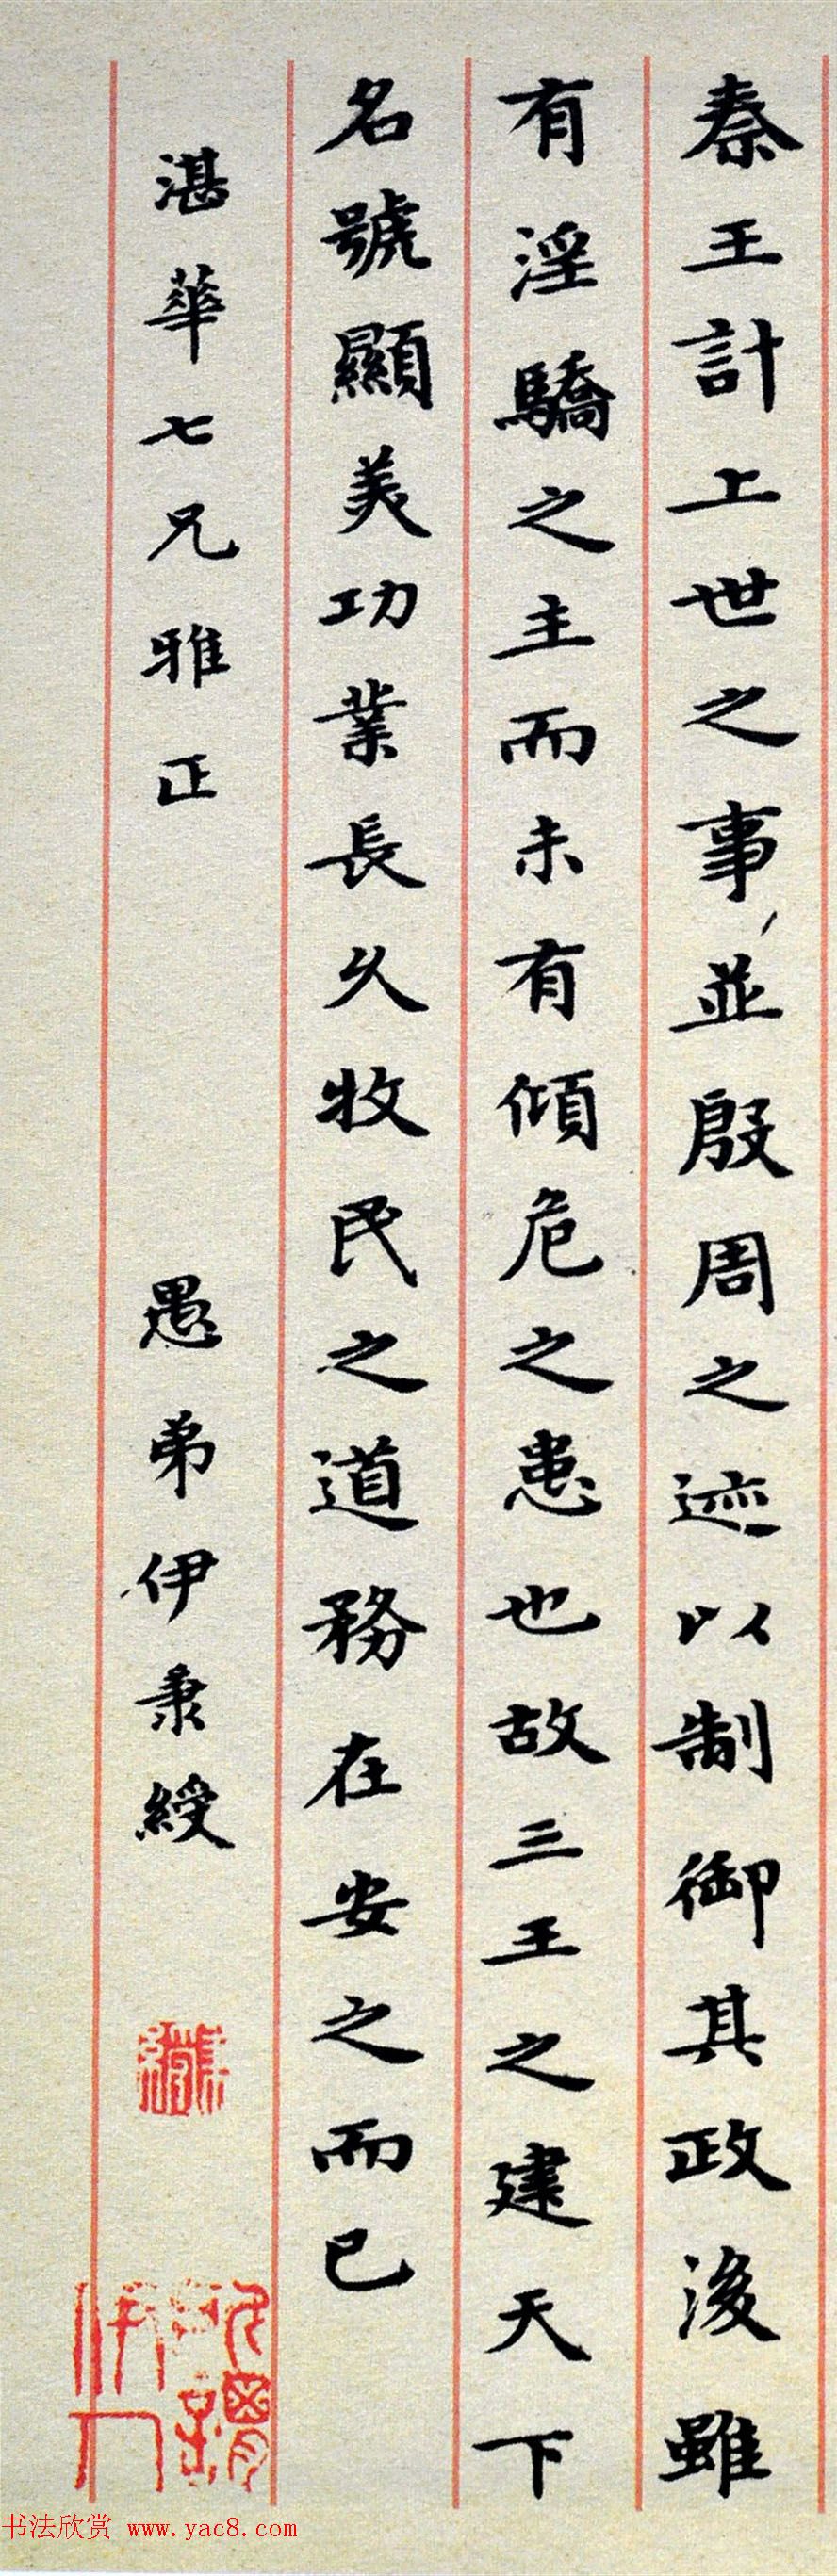 秦王計上世之事並殷周之迹以制御其政後雖
有淫驕之主而未有傾危之患也故三王之建天下
名號顯美功業長久牧民之道務在安之而已
湛華七兄雅正 愚弟伊秉綬
所謂伊人
书法欣赏 www.yac8.com